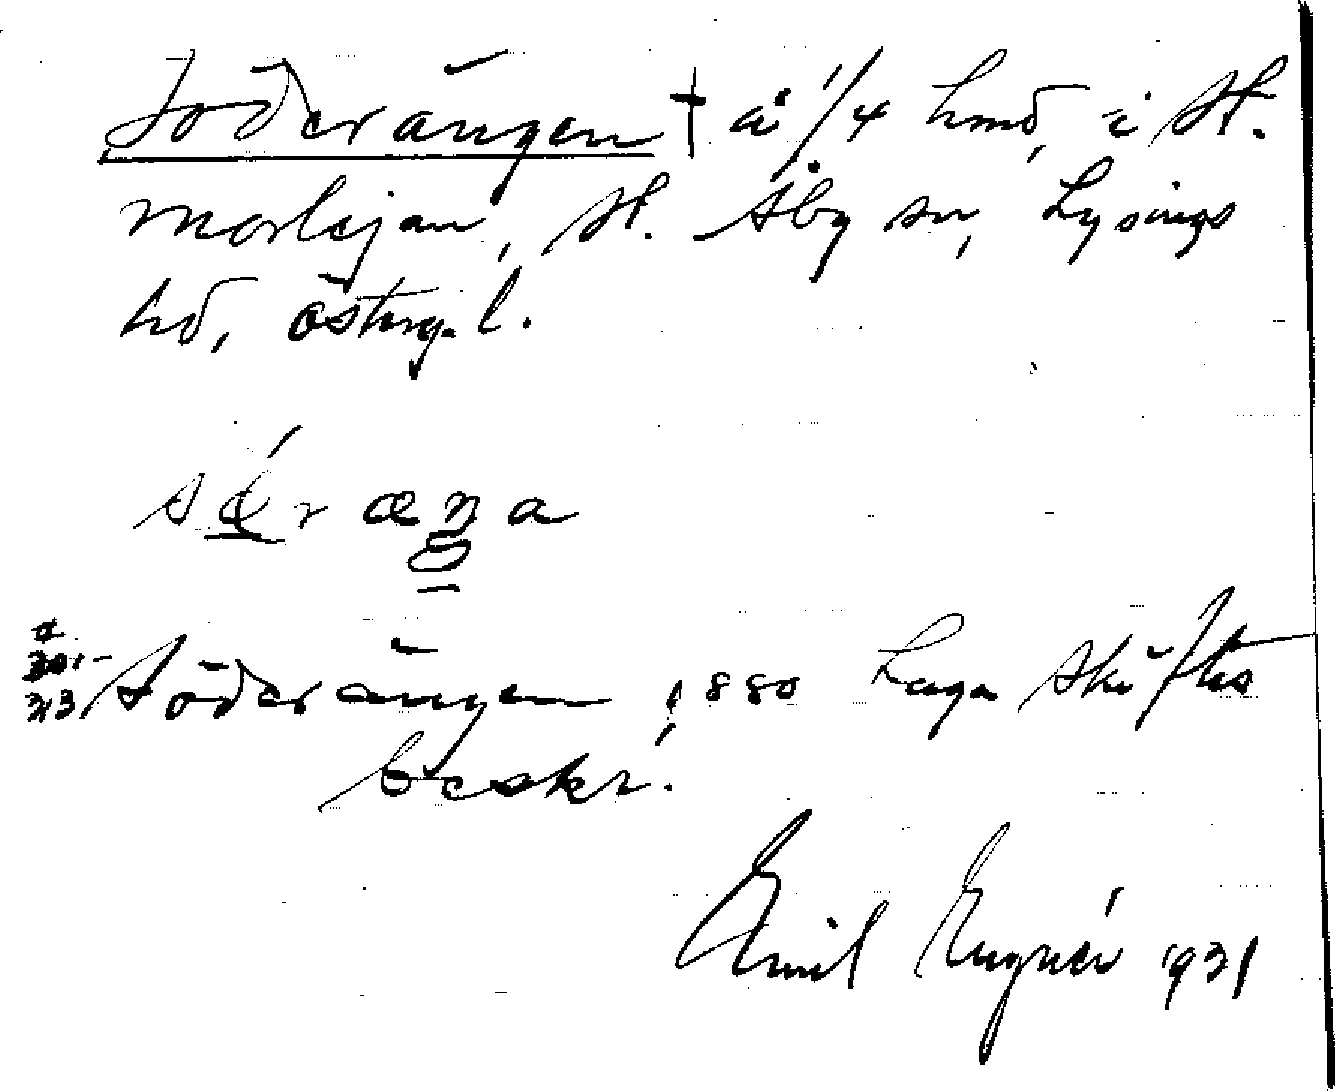 Söderängen † å 1/4 hmd, i St.
Morlejan, St. Åby sn, Lysings
hd, Österg. l.
Söderängen 1880 Laga Skifts
beskr.
Emil Engnér 1931